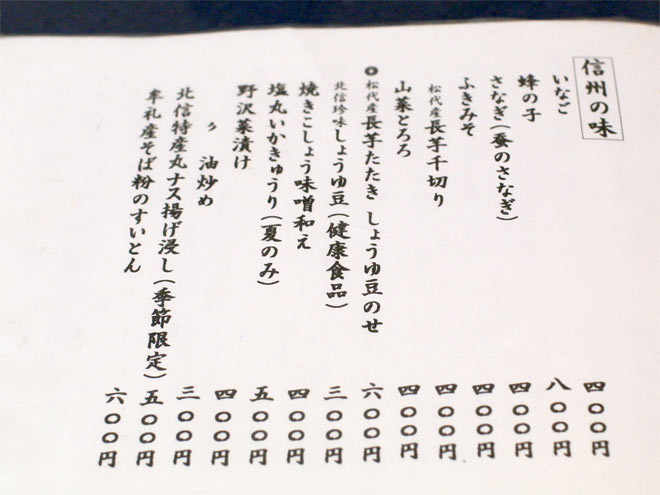 信州の味
いなご 四〇〇円
蜂の子 八〇〇円
さなぎ(蚕のさなぎ) 四〇〇円
ふきみそ 四〇〇円
松代産長芋千切り 四〇〇円
山菜とろろ 四〇〇円
◎松代産長芋たたき しょうゆ豆のせ 六〇〇円
北信珍味しょうゆ豆(健康食品) 三〇〇円
焼きこしょう味噌和え 四〇〇円
塩丸いかきゅうり(夏のみ) 五〇〇円
野沢菜漬け 四〇〇円
〃 油炒め 三〇〇円
北信特産丸ナス揚げ浸し(季節限定) 五〇〇円
牟礼産そば粉のすいとん 六〇〇円